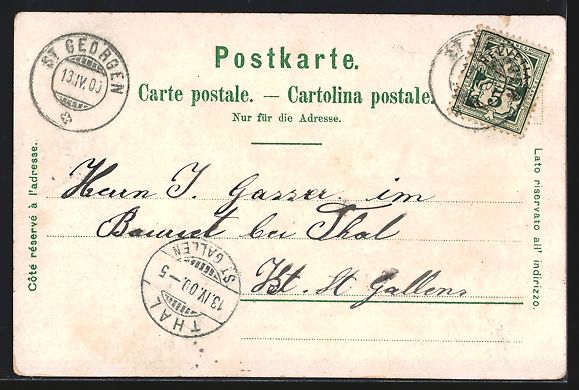 Postkarte.
Carte postale. — Cartolina postale.
Nur für die Adresse.
ST GEORGEN
13.IV.00
5
Côté réservé à l'adresse.
Lato riservato all' indirizzo.
Herrn J. Gasser im
bei Thal
Kt. St Gallen
THAL
13.IV.00 - 5
ST GALLEN